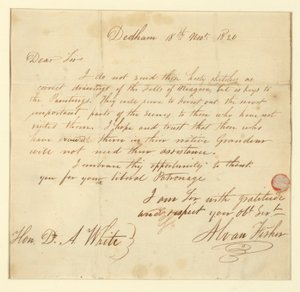 Dedham 18th Nov. 1820
Dear Sir
I do not send these hasty sketches as
correct drawings of the Falls of Niagara but as keys to
the Paintings. They will serve to point out the most
important parts of the scenes to those who have not
visited them. I hope and trust that those who
have viewed them in their native Grandeur
will not need their assistance.
I embrace this opportunity to thank
you for your liberal Patronage
I am Sir with gratitude
and respect your Obt. Servt.
Alvan Fisher
Hon. D. A. White